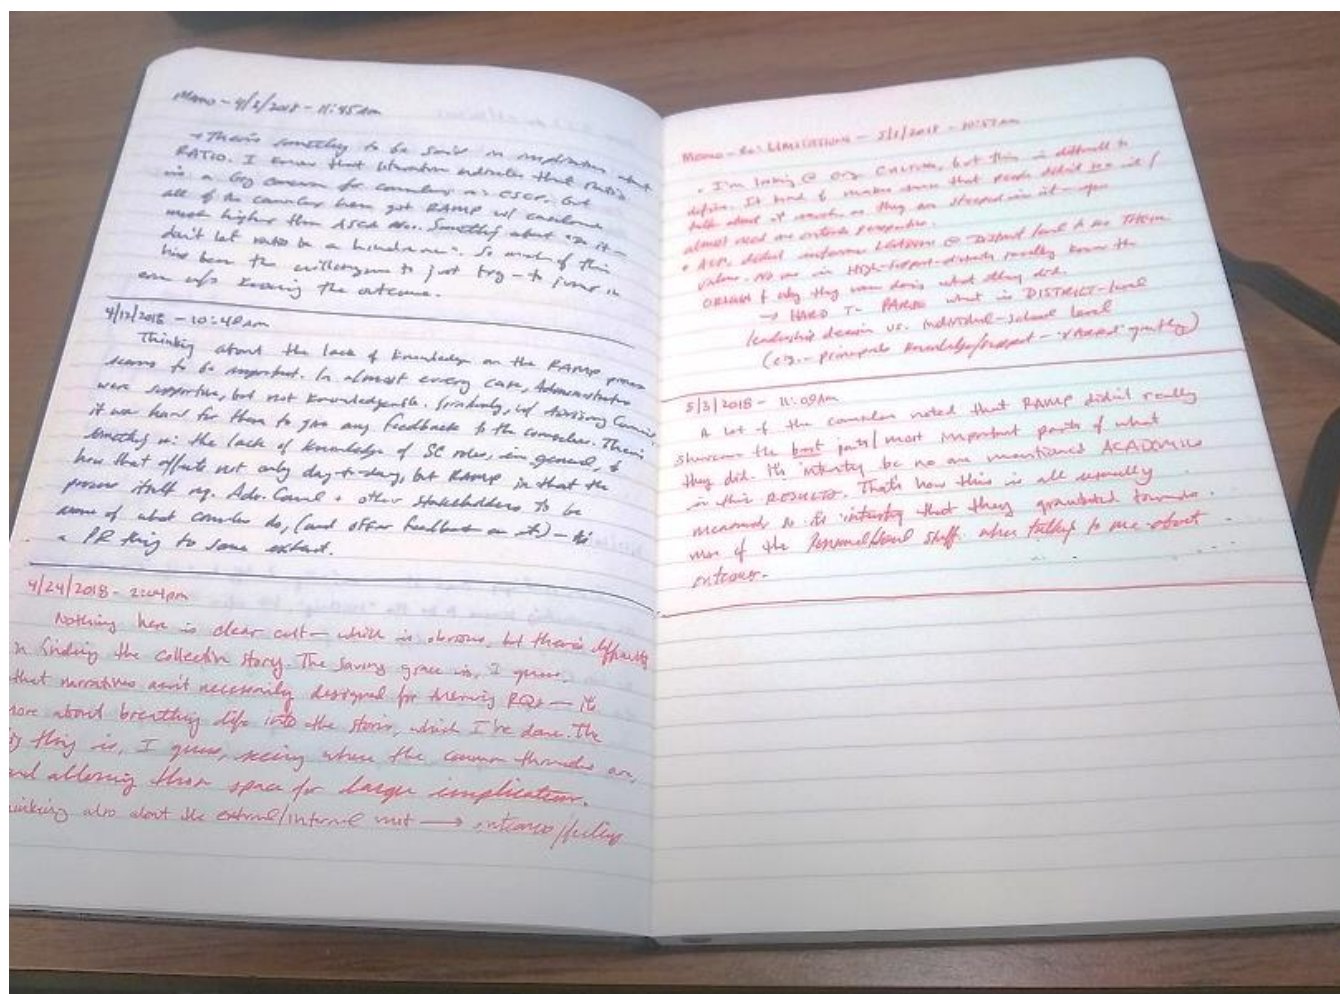 Memo - 4/2/2018 - 11:45am
→ There's something to be said in implications about
RATIO. I know that literature indicates that ratio
is a big concern for counselors CSCP. But
all of the counselors here got RAMP w/ caseloads
much higher than ASCA Something about
don't let ratio be a hindrance. So much of this
has been the willingness to just try - to jump in
even w/o knowing the outcome.
4/12/2018 - 10:40am
Thinking about the lack of knowledge on the RAMP process
seems to be important. In almost every case, Administrators
were supportive, but not knowledgeable. Similarly, w/ Advisory Council
it was hard for them to give any feedback to the counselors. There's
something re: the lack of knowledge of SC roles, in general, &
how that affects not only day-to-day, but RAMP in that the
process itself Adv. Council + other stakeholders to be
aware of what counselors do, (and offer feedback on it) -
a PR thing to some extent.
4/24/2018 - 2:04pm
Nothing here is clear cut - which is obvious, but there's difficulty
in finding the collective story. The saving grace is, I guess,
that narratives aren't necessarily designed for RQs - it's
more about breathing life into the stories, which I've done. The
thing is, I guess, seeing where the common threads are,
and allowing them space for larger implications.
thinking also about the external/internal →
Memo - Re: LIMITATIONS - 5/1/2018 - 10:57am
• I'm looking @ org culture, but this is difficult to
define. It kind of makes sense that people didn't see it/
talk about it much, as they are steeped in it - you
almost need an outside perspective.
• Also, didn't interview LEADERS @ District level to see THEIR
values. No one in High-support-districts really knew the
ORIGIN of why they were doing what they did.
→ HARD TO PARSE what is DISTRICT-level
leadership decision vs. individual-school level
(e.g. - principals knowledge/support - varied greatly)
5/3/2018 - 11:09am
A lot of the counselors noted that RAMP didn't really
showcase the best parts/most important parts of what
they did. It's interesting bc no one mentioned ACADEMICS
in their RESULTS. That's how this is all usually
measured so it's interesting that they gravitated towards
more of the Personal/Social stuff when talking to me about
outcomes.